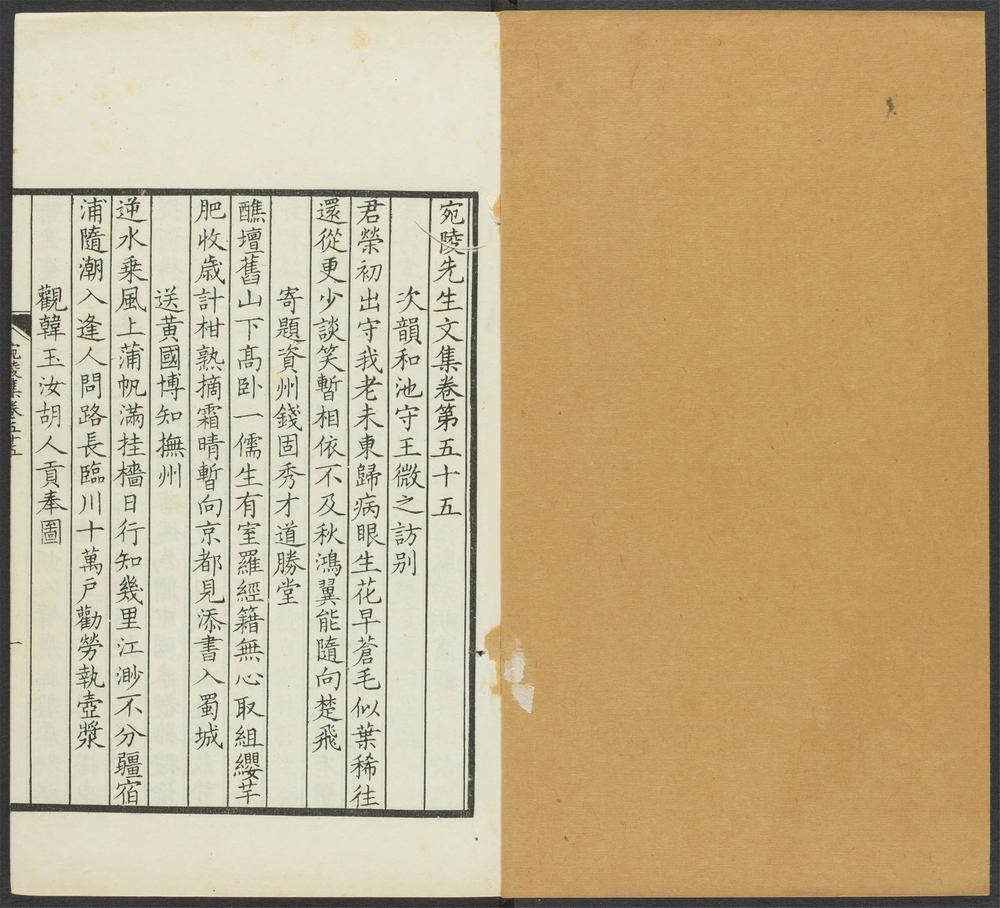 宛陵先生文集卷第五十五
次韻和池守王微之訪别
君榮初出守我老未東歸病眼生花早蒼毛似葉稀往
還從更少談笑暫相依不及秋鴻翼能隨向楚飛
寄題資州錢固秀才道勝堂
醮壇舊山下髙卧一儒生有室羅經籍無心取組纓芋
肥收歳計柑熟摘霜晴暫向京都見添書入蜀城
送黃國博知撫州
逆水乗風上蒲帆滿挂檣日行知幾里江渺不分疆宿
浦隨潮入逢人問路長臨川十萬戸勸勞執壺漿
觀韓玉汝胡人貢奉圖
宛陵集卷五十五
一